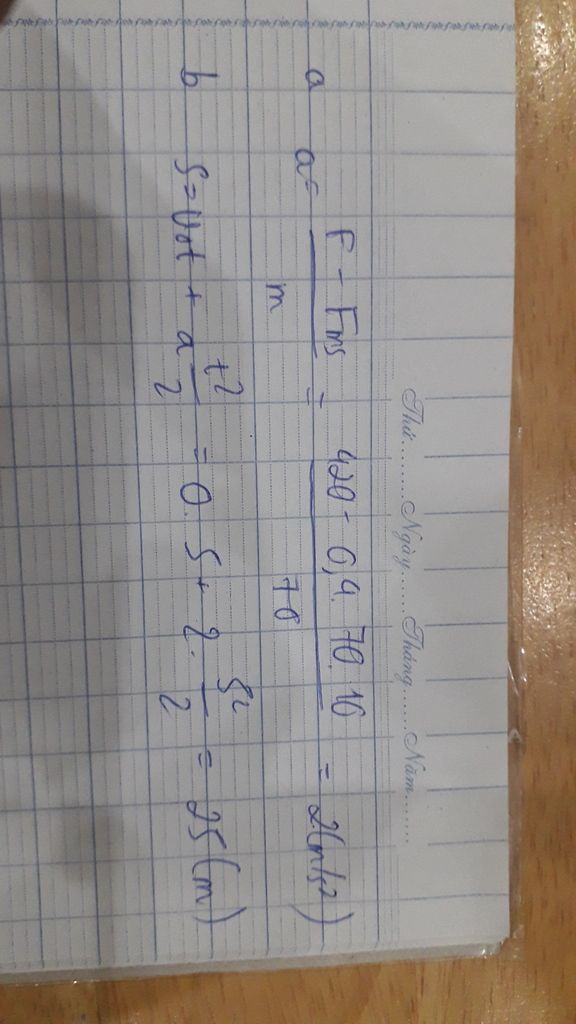 Thứ.........Ngày.......Tháng.......Năm........
a a = \frac{F - Fms}{m} = \frac{420 - 0,4. 70. 10}{70} = 2(m/s²)
b S = V₀t + a \frac{t²}{2} = 0. 5 + 2. \frac{5²}{2} = 25 (m)